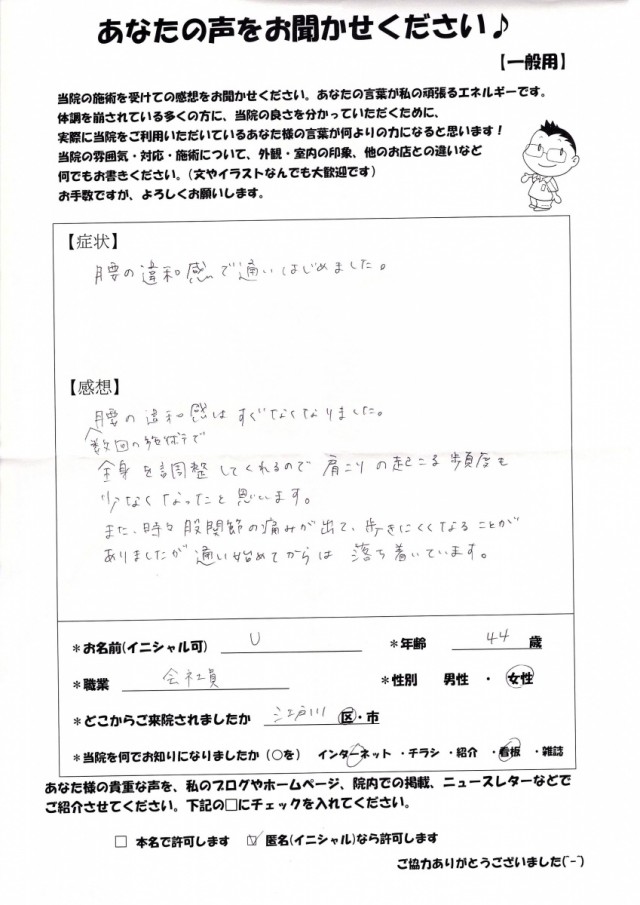 あなたの声をお聞かせください♪
【一般用】
当院の施術を受けての感想をお聞かせください。あなたの言葉が私の頑張るエネルギーです。
体調を崩されている多くの方に、当院の良さを分かっていただくために、
実際に当院をご利用いただいているあなた様の言葉が何よりの力になると思います！
当院の雰囲気・対応・施術について、外観・室内の印象、他のお店との違いなど
何でもお書きください。（文やイラストなんでも大歓迎です）
お手数ですが、よろしくお願いします。
【症状】
腰の違和感で通いはじめました。
【感想】
腰の違和感はすぐなくなりました。
数回の施術で
全身を調整してくれるので肩こりの起こる頻度も
少なくなったと思います。
また、時々股関節の痛みが出て、歩きにくくなることが
ありましたが通い始めてからは落ち着いています。
＊お名前(イニシャル可) U ＊年齢 44 歳
＊職業 会社員 ＊性別 男性 ・ 女性
＊どこからご来院されましたか 江戸川 区・市
＊当院を何でお知りになりましたか（○を） インターネット ・チラシ ・紹介 ・看板 ・雑誌
あなた様の貴重な声を、私のブログやホームページ、院内での掲載、ニュースレターなどで
ご紹介させてください。下記の□にチェックを入れてください。
□ 本名で許可します ☑ 匿名(イニシャル)なら許可します
ご協力ありがとうございました(ˉ-ˉ)